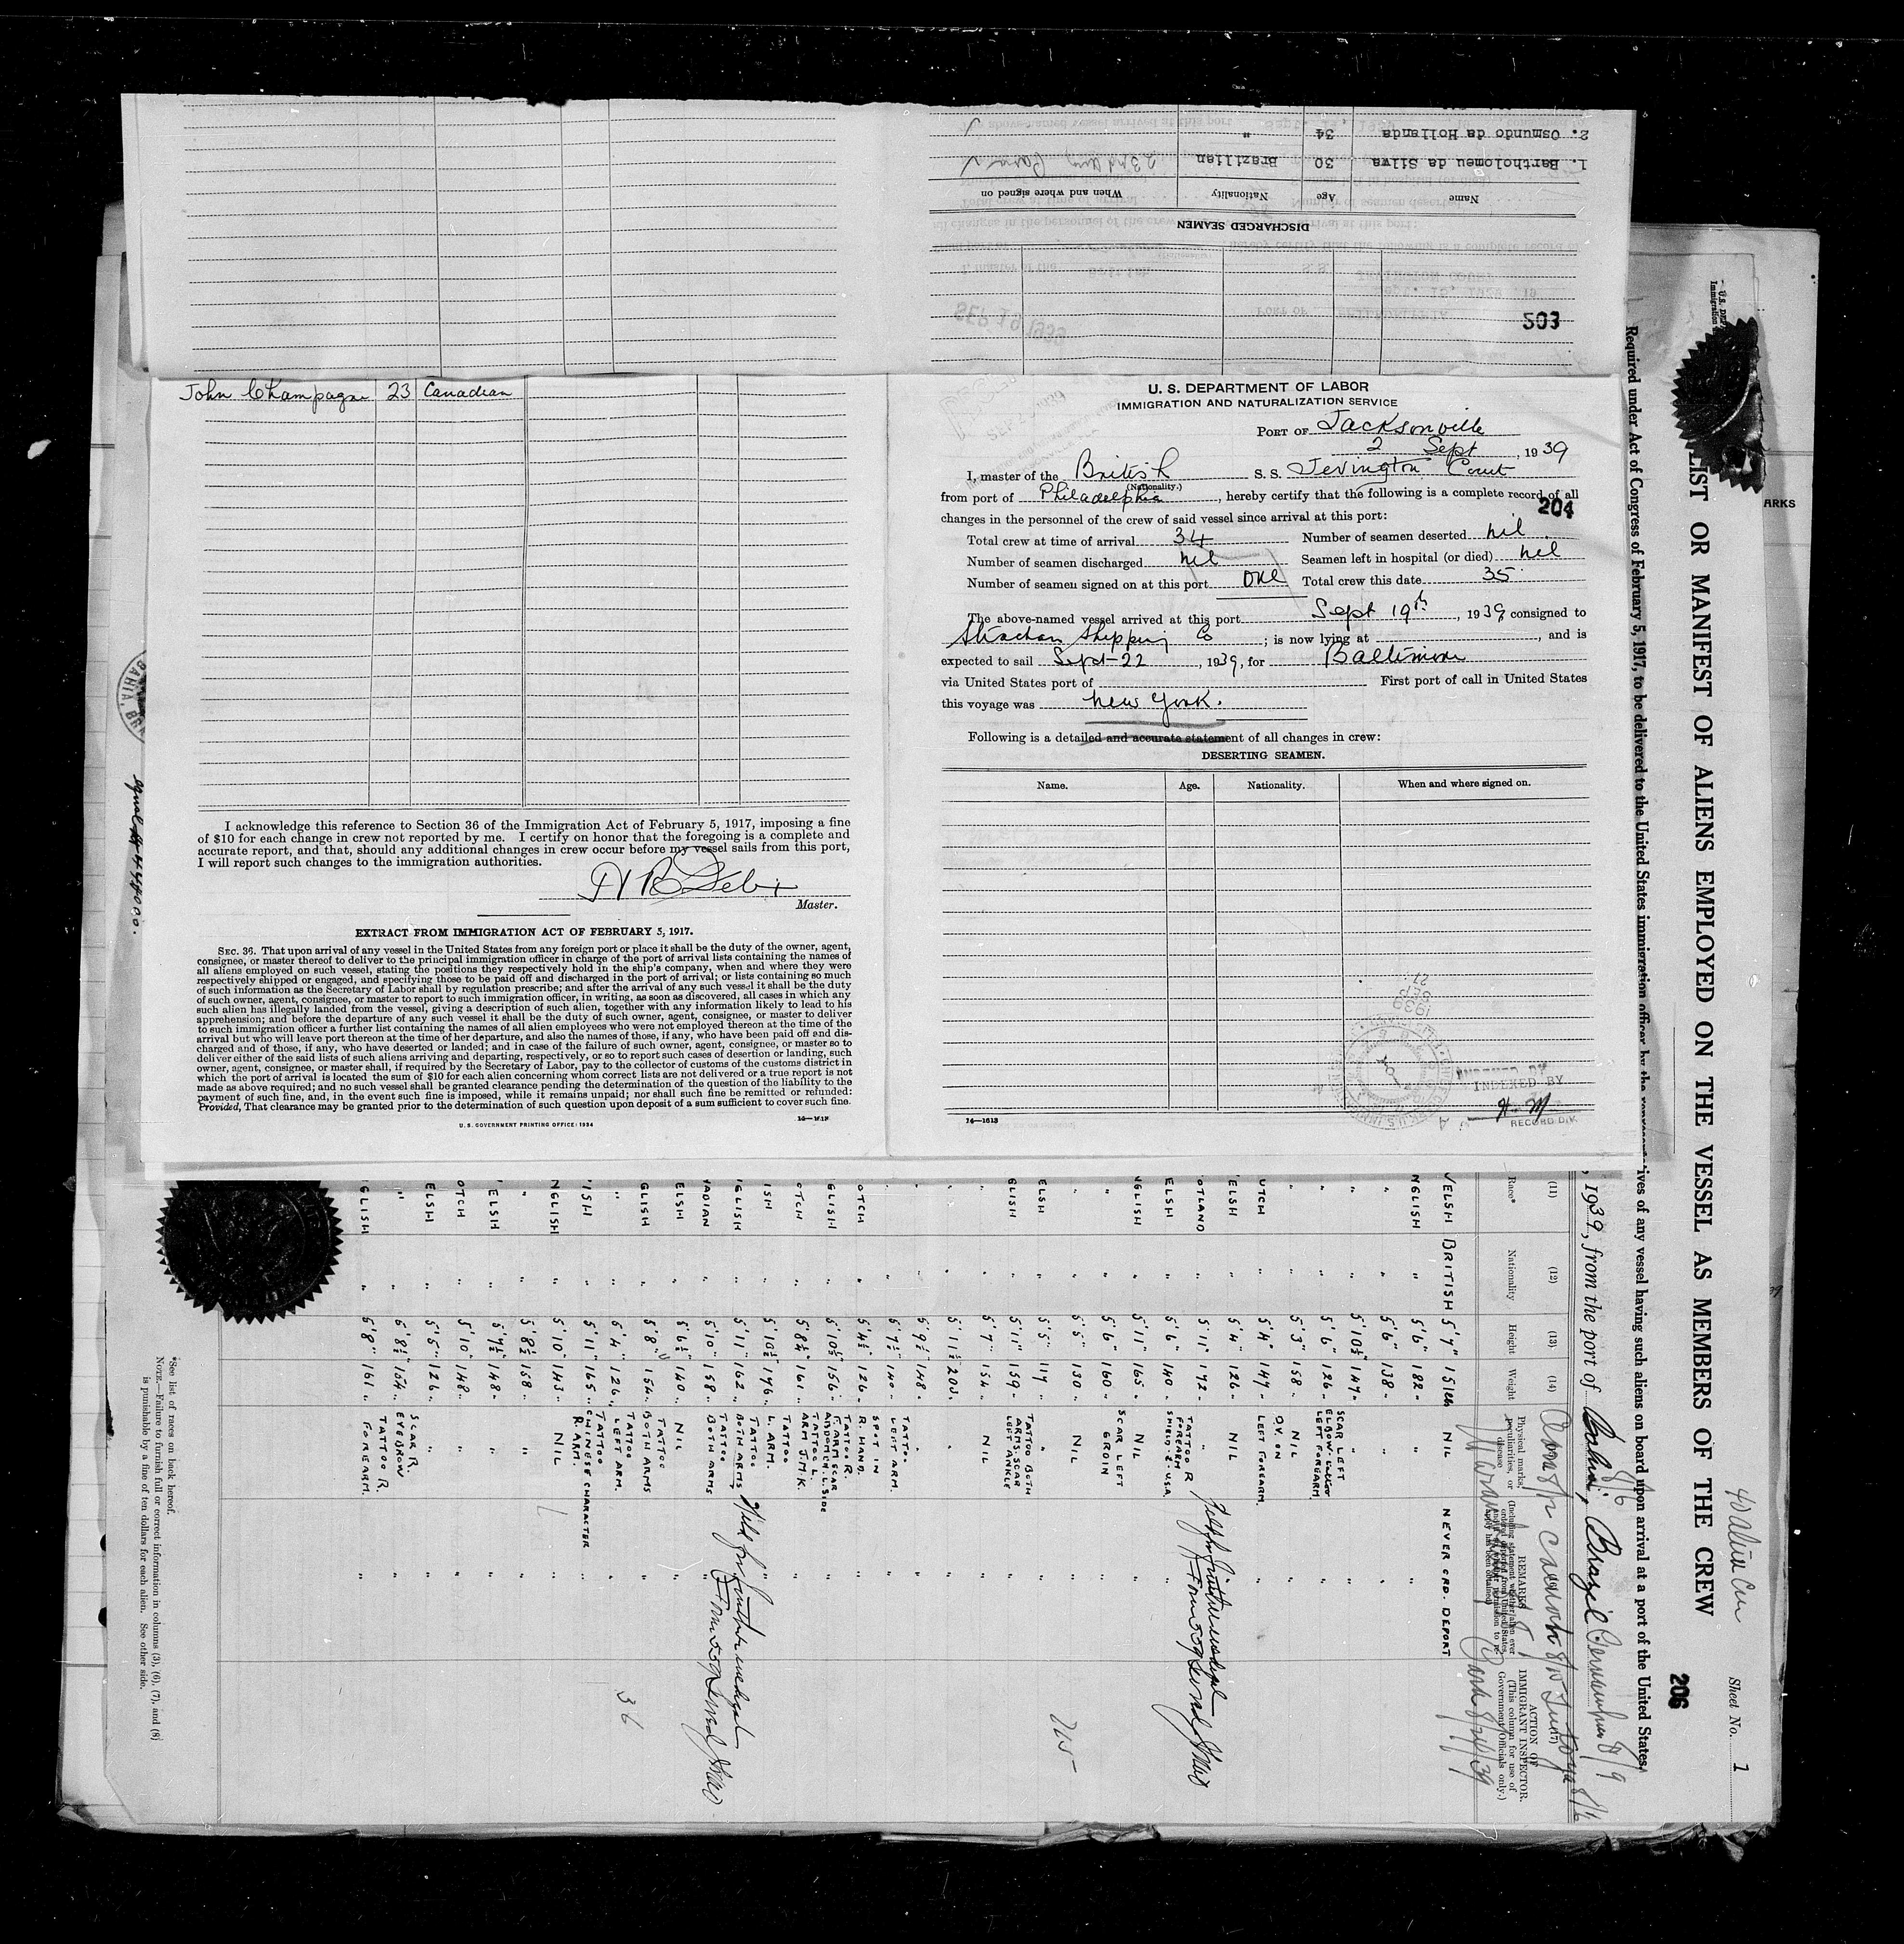 2. Osmundo da Hollanda 34 "
1. Bartholomeu da Silva 30 Brazilian
Name Age Nationality When and where signed on
DISCHARGED SEAMEN
503
John Champagne 23 Canadian
I acknowledge this reference to Section 36 of the Immigration Act of February 5, 1917, imposing a fine
of $10 for each change in crew not reported by me. I certify on honor that the foregoing is a complete and
accurate report, and that, should any additional changes in crew occur before my vessel sails from this port,
I will report such changes to the immigration authorities.
Master.
EXTRACT FROM IMMIGRATION ACT OF FEBRUARY 5, 1917.
SEC. 36. That upon arrival of any vessel in the United States from any foreign port or place it shall be the duty of the owner, agent,
consignee, or master thereof to deliver to the principal immigration officer in charge of the port of arrival lists containing the names of
all aliens employed on such vessel, stating the positions they respectively hold in the ship's company, when and where they were
respectively shipped or engaged, and specifying those to be paid off and discharged in the port of arrival; or lists containing so much
of such information as the Secretary of Labor shall by regulation prescribe; and after the arrival of any such vessel it shall be the duty
of such owner, agent, consignee, or master to report to such immigration officer, in writing, as soon as discovered, all cases in which any
such alien has illegally landed from the vessel, giving a description of such alien, together with any information likely to lead to his
apprehension; and before the departure of any such vessel it shall be the duty of such owner, agent, consignee, or master to deliver
to such immigration officer a further list containing the names of all alien employees who were not employed thereon at the time of the
arrival but who will leave port thereon at the time of her departure, and also the names of those, if any, who have been paid off and dis-
charged and of those, if any, who have deserted or landed; and in case of the failure of such owner, agent, consignee, or master so to
deliver either of the said lists of such aliens arriving and departing, respectively, or so to report such cases of desertion or landing, such
owner, agent, consignee, or master shall, if required by the Secretary of Labor, pay to the collector of customs of the customs district in
which the port of arrival is located the sum of $10 for each alien concerning whom correct lists are not delivered or a true report is not
made as above required; and no such vessel shall be granted clearance pending the determination of the question of the liability to the
payment of such fine, and, in the event such fine is imposed, while it remains unpaid; nor shall such fine be remitted or refunded:
Provided, That clearance may be granted prior to the determination of such question upon deposit of a sum sufficient to cover such fine.
U. S. GOVERNMENT PRINTING OFFICE: 1934
U. S. DEPARTMENT OF LABOR
IMMIGRATION AND NATURALIZATION SERVICE
PORT OF Jacksonville
2 Sept, 1939
I, master of the British S. S. Jevington Court
(Nationality.)
from port of Philadelphia, hereby certify that the following is a complete record of all
204
changes in the personnel of the crew of said vessel since arrival at this port:
Total crew at time of arrival 34 Number of seamen deserted nil
Number of seamen discharged nil Seamen left in hospital (or died) nil
Number of seamen signed on at this port one Total crew this date 35
The above-named vessel arrived at this port Sept 19th, 1939 consigned to
Strachan Shipping Co; is now lying at , and is
expected to sail Sept-22, 1939, for Baltimore
via United States port of First port of call in United States
this voyage was New York.
Following is a detailed and accurate statement of all changes in crew:
DESERTING SEAMEN.
Name. Age. Nationality. When and where signed on.
1939
SEP
21
INDEXED BY
H. M.
RECORD DIV.
14—1613
Sheet No. 1
206
LIST OR MANIFEST OF ALIENS EMPLOYED ON THE VESSEL AS MEMBERS OF THE CREW
Required under Act of Congress of February 5, 1917, to be delivered to the United States immigration officer by the representatives of any vessel having such aliens on board upon arrival at a port of the United States
, 1939, from the port of Bahia, Brazil
(11) (12) (13) (14)
Race* Nationality Height Weight Physical marks, peculiarities, or disease REMARKS ACTION OF IMMIGRANT INSPECTOR.
(This column for use of Government Officials only.)
WELSH BRITISH 5'7" 151 lbs NIL NEVER ORD. DEPORT
NGLISH " 5'6" 182 " " "
" " 5'6" 138 " " "
" " 5'10½ 147 " " "
" " 5'6" 126 " SCAR LEFT ELBOW LEFT FOREARM "
" " 5'3" 158 " NIL "
UTCH " 5'4" 147 " DV. ON LEFT FOREARM "
ELSH " 5'4" 126 " NIL "
OTLAND " 5'11" 172 " "
ELSH " 5'6" 140 " TATTOO R FOREARM SHIELD & U.S.A.
NGLISH " 5'11" 165 " NIL "
" " 5'6" 160 " SCAR LEFT GROIN "
" " 5'5" 130 " NIL "
ELSH " 5'5" 117 " " "
GLISH " 5'11" 159 " TATTOO BOTH ARMS. SCAR LEFT ANKLE "
" " 5'7" 154 " NIL "
" " 5'11½ 203 " " "
" " 5'9½ 148 "
" " 5'7½ 140 " TATTOO LEFT ARM. "
OTCH " 5'4½ 126 " SPOT IN R. HAND. "
GLISH " 5'10½ 156 " TATTOO R. F. ARM SCAR ABDOMEN L. SIDE "
OTCH " 5'8¼ 161 " TATTOO L. ARM J.M.K. "
ISH " 5'10½ 176 " TATTOO L. ARM. "
GLISH " 5'11" 162 " TATTOO BOTH ARMS
NADIAN " 5'10" 158 " TATTOO BOTH ARMS "
ELSH " 5'6½ 140 " NIL "
GLISH " 5'8" 154 " TATTOO BOTH ARMS "
" " 6'4" 126 " TATTOO LEFT ARM. "
ISH " 5'11" 165 " TATTOO CHINESE CHARACTER R. ARM. "
NGLISH " 5'10" 143 " NIL "
" " 5'8½ 158 " " "
ELSH " 5'7½ 148 " " "
OTCH " 5'10" 148 " " "
ELSH " 5'5" 126 " " "
" " 6'8½ 154 " SCAR R. EYEBROW "
GLISH " 5'8" 161 " TATTOO R. FOREARM. "
36
*See list of races on back hereof.
NOTE.—Failure to furnish full or correct information in columns (3), (6), (7), and (8)
is punishable by a fine of ten dollars for each alien. See other side.
ARKS